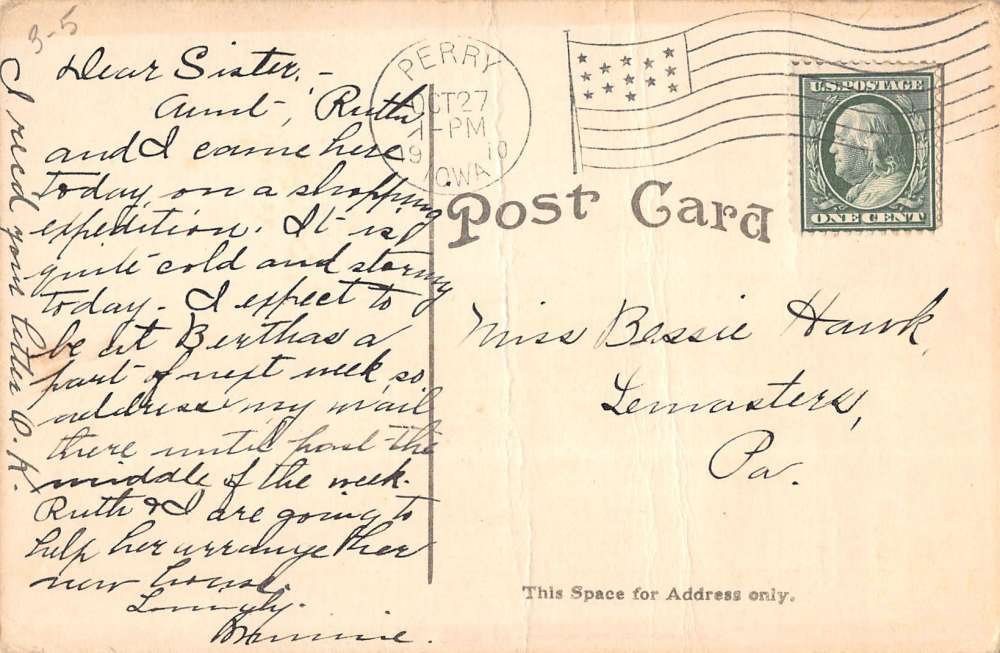 3-5
Dear Sister, -
Aunt Ruth
and I came here
today, on a shopping
expedition. It is
quite cold and stormy
today. I expect to
be at Berthas a
part of next week, so
address my mail
there until past the
middle of the week.
Ruth & I are going to
help her arrange her
new house.
Lovingly.
Minnie.
I rec'd your letter O.K.
PERRY
OCT 27
7-PM
1910
IOWA
U.S. POSTAGE
ONE CENT
Post Card
Miss Bessie Hawk,
Lemasters,
Pa.
This Space for Address only.